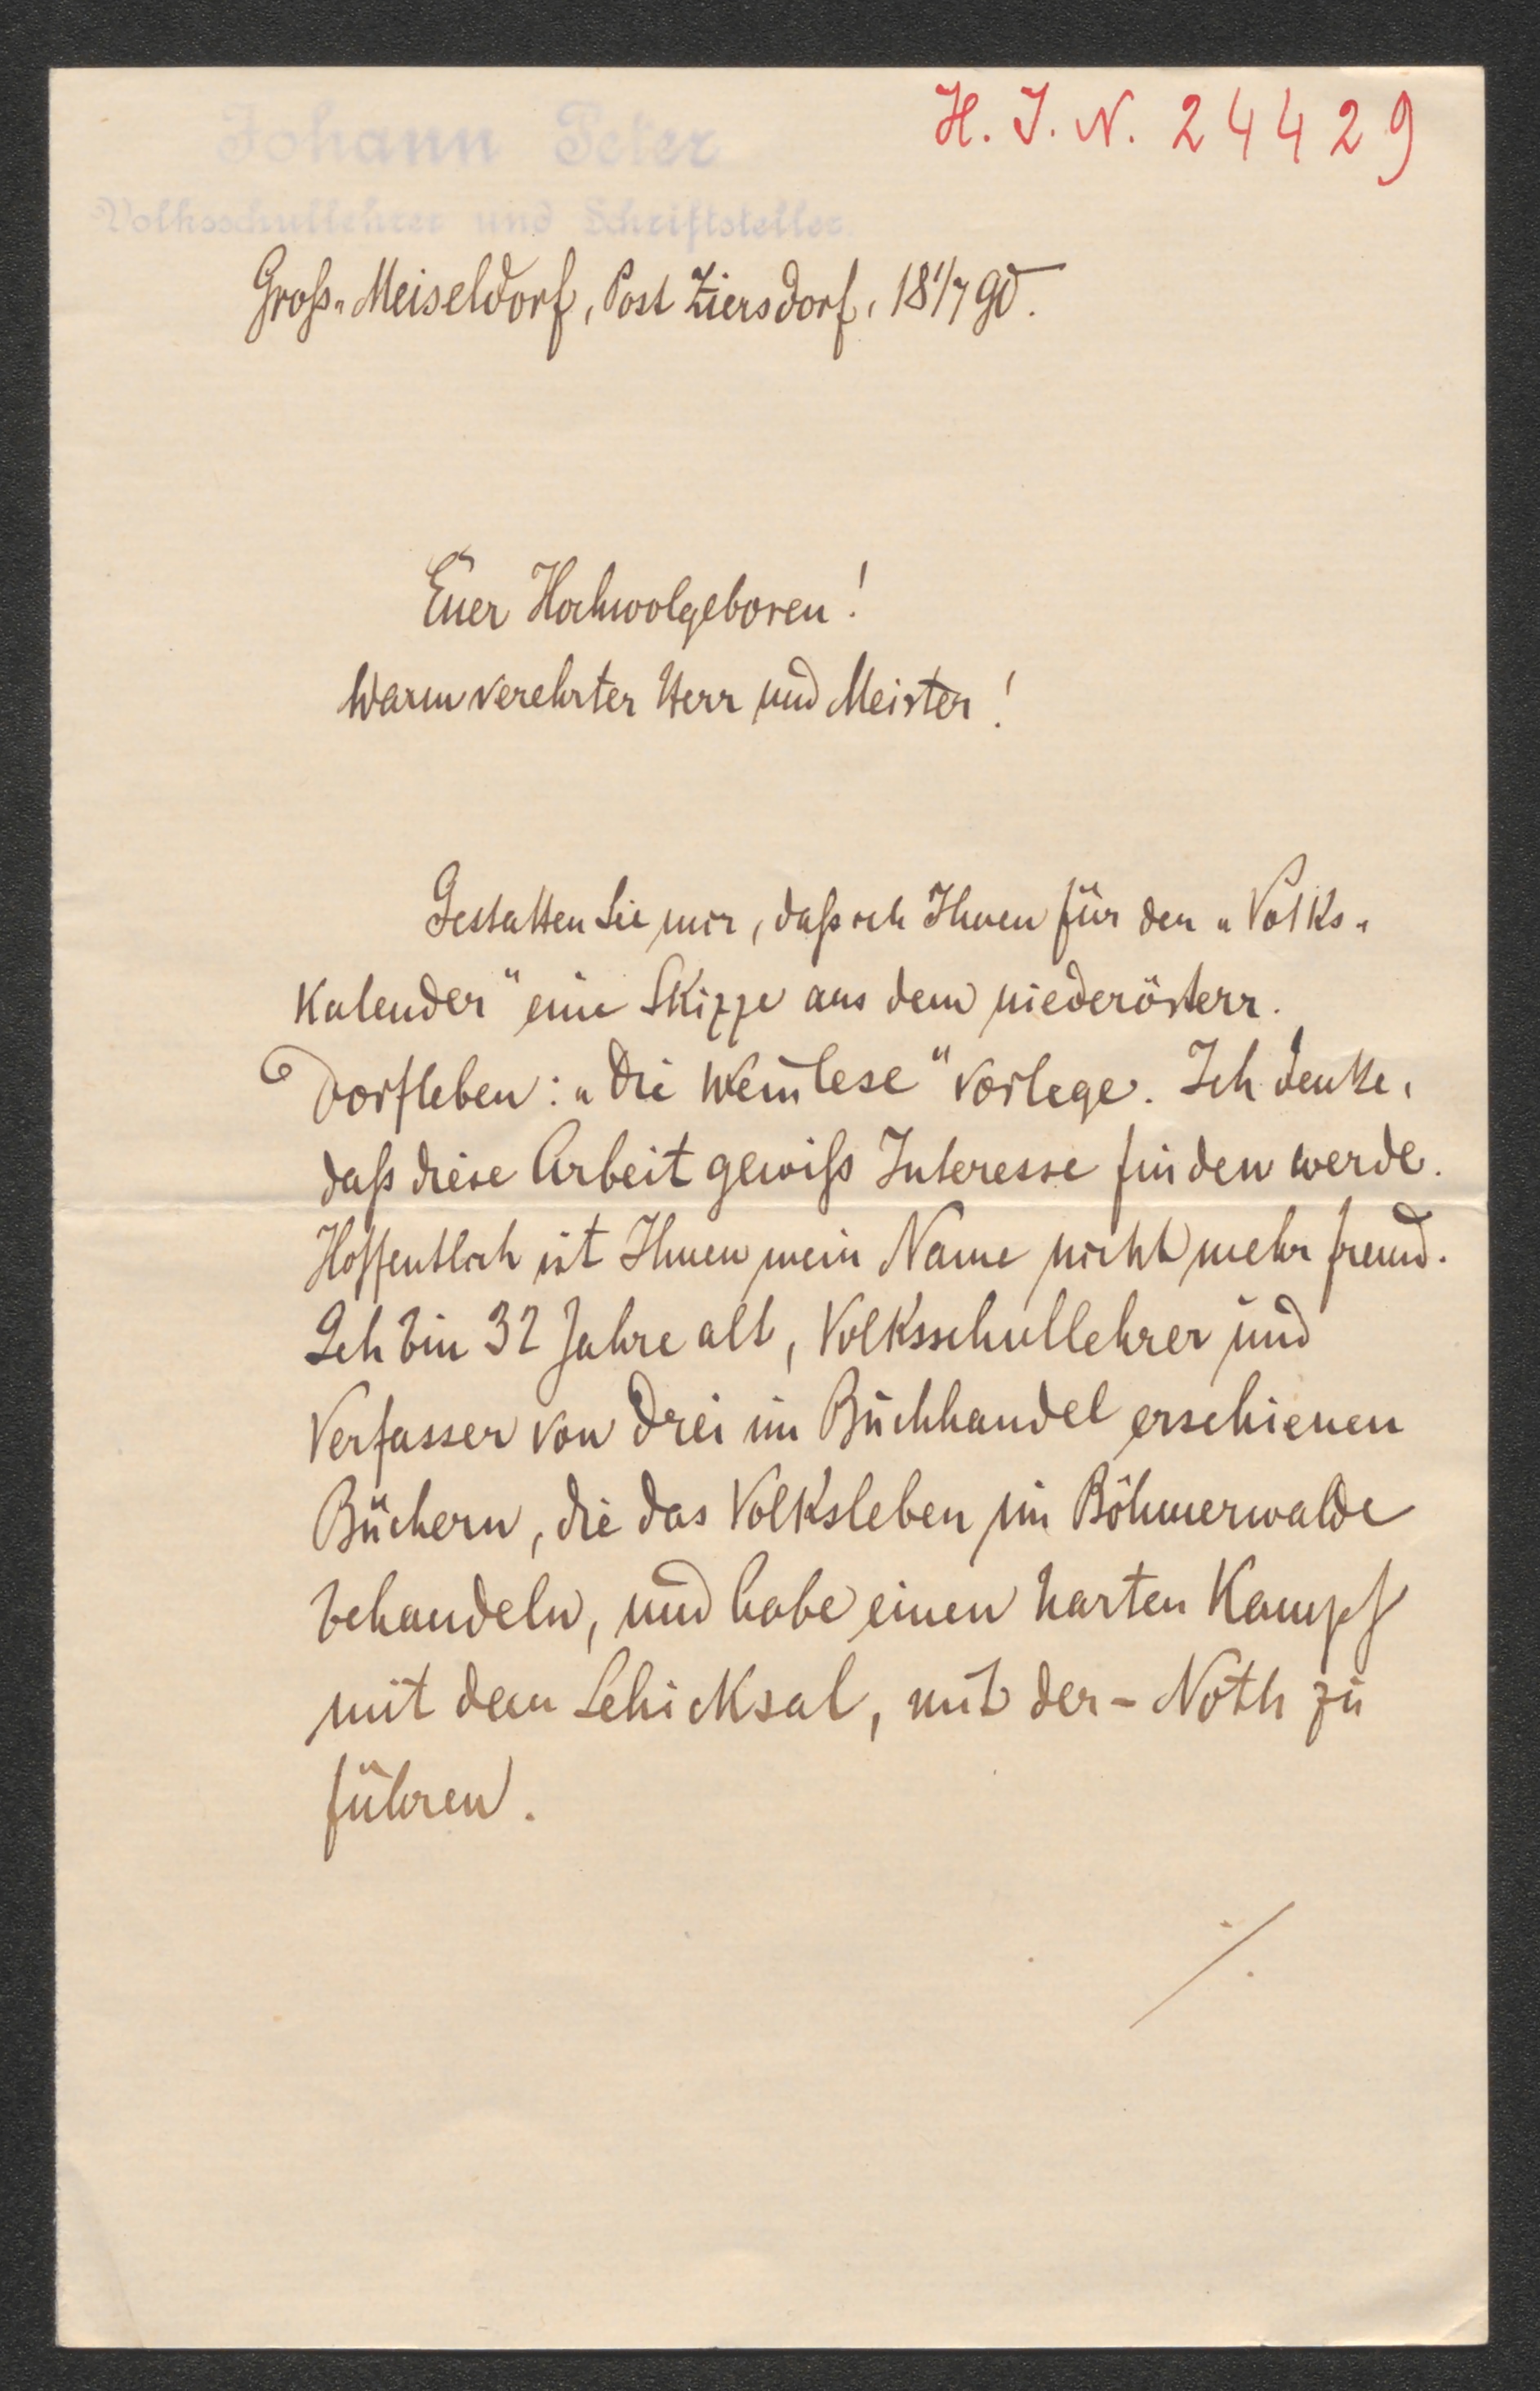 H. I. N. 24429
Johann Peter
Volksschullehrer und Schriftsteller.
Groß-Meiseldorf, Post Ziersdorf, 18 1/7 90.
Euer Hochwolgeboren!
Warm verehrter Herr und Meister!
Gestatten Sie mir, daß ich Ihnen für den „Volks-
Kalender" eine Skizze aus dem niederösterr.
Dorfleben: „Die Weinlese" vorlege. Ich denke,
daß diese Arbeit gewiß Interesse finden werde.
Hoffentlich ist Ihnen mein Name nicht mehr fremd.
Ich bin 32 Jahre alt, Volksschullehrer und
Verfasser von drei im Buchhandel erschienen
Büchern, die das Volksleben im Böhmerwalde
behandeln, und habe einen harten Kampf
mit dem Schicksal, mit der - Noth zu
führen.
./.